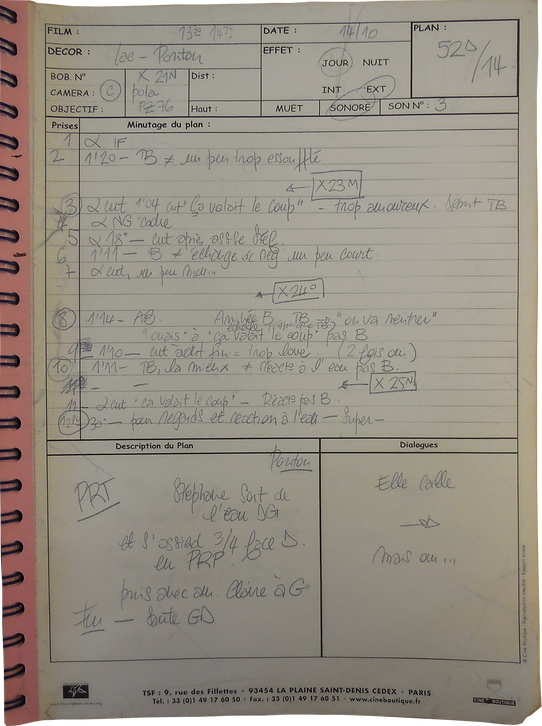 FILM : 13 14
DATE : 14/10
PLAN : 52D/14
DECOR : lac - Ponton
EFFET : JOUR NUIT
INT EXT
BOB. N° X 21N Dist :
CAMERA : C pola
OBJECTIF : PZ76 Haut :
MUET SONORE SON N° : 3
Prises Minutage du plan :
1 α IF
2 1'20 - TB ≠ un peu trop essoufflé
← X23M
3 α cut 1'04 cut "Ça valait le coup" - trop amoureux. TB
4 α NG cadre
5 α 18" - cut après
6 1'11 - B ≠ échange de reg un peu court.
7 α cut, un peu mou...
← X24O
8 1'14 - AB. Arrivée B TB "on va rentrer"
"ouais" à "ça valait le coup" pas B
9 1'10 - cut fin = trop (2 fois oui)
10 1'11 - TB, la mieux ≠ réact à l'eau pas B.
← X 25N
11 α cut "ça valait le coup" - React pas B.
12 30" - pour regards et reaction à l'eau - Super -
Description du Plan
Dialogues
Ponton
PRT Stéphane sort de
l'eau DG
et s'assied 3/4 face D.
en PRP.
puis avec am. Claire à G
Fin - Saute GD
Elle caille
→
mais ou ...
TSF : 9, rue des Fillettes - 93454 LA PLAINE SAINT-DENIS CEDEX - PARIS
Tél. : 33 (0)1 49 17 60 50 - Fax. : 33 (0)1 49 17 60 51 - www.cineboutique.fr
CINÉ BOUTIQUE